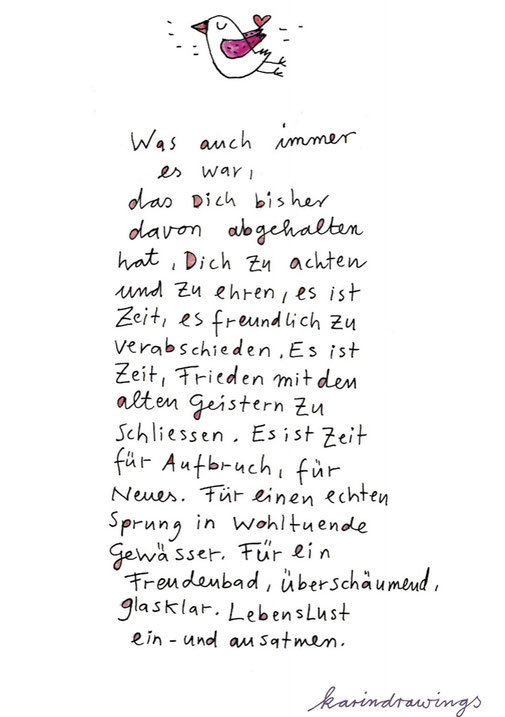 Was auch immer
es war,
das Dich bisher
davon abgehalten
hat, Dich zu achten
und zu ehren, es ist
Zeit, es freundlich zu
verabschieden. Es ist
Zeit, Frieden mit den
alten Geistern zu
schliessen. Es ist Zeit
für Aufbruch, für
Neues. Für einen echten
Sprung in wohltuende
Gewässer. Für ein
Freudenbad, überschäumend,
glasklar. Lebenslust
ein- und ausatmen.
karindrawings